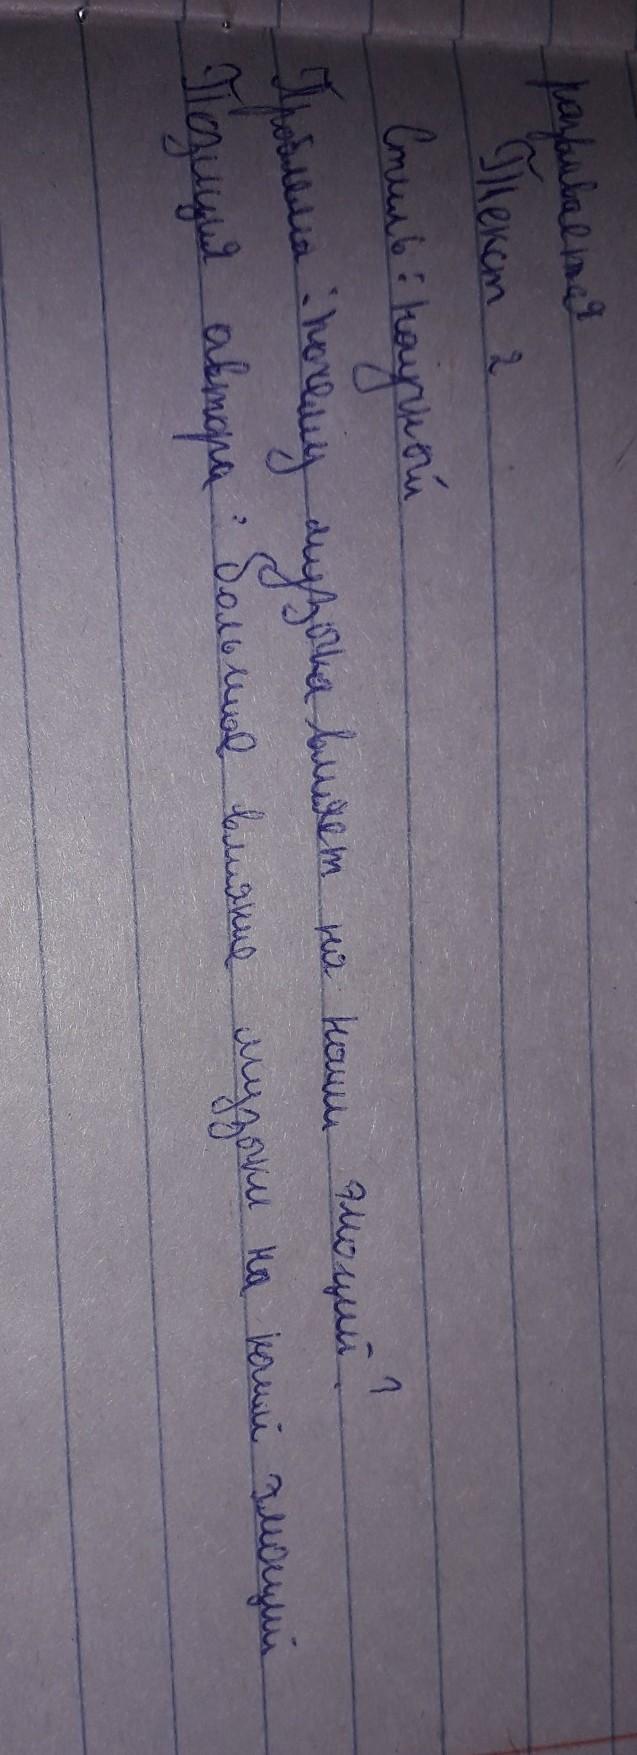 разрывается
Текст 2
Стиль: научный
Проблема: почему музыка влияет на наши эмоций?
Позиция автора: большое влияние музыки на наши эмоций